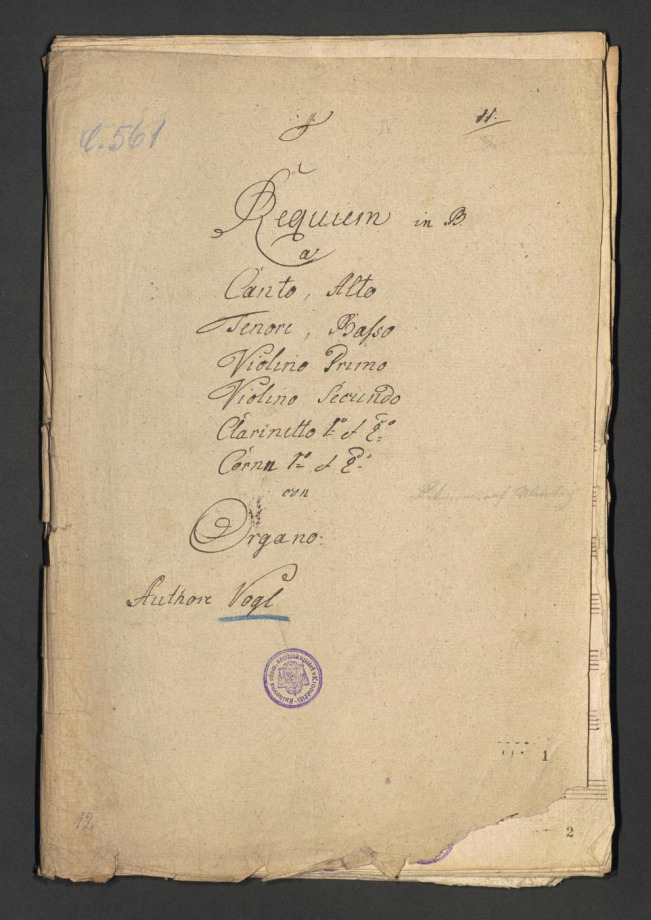 C. 561
11.
Requiem in B.
a
Canto, Alto
Tenore, Baſso
Violino Primo
Violino Secundo
Clarinetto 1mo et 2do
Cornu 1mo et 2do
con
Organo.
Authore Vogl
1
2
12